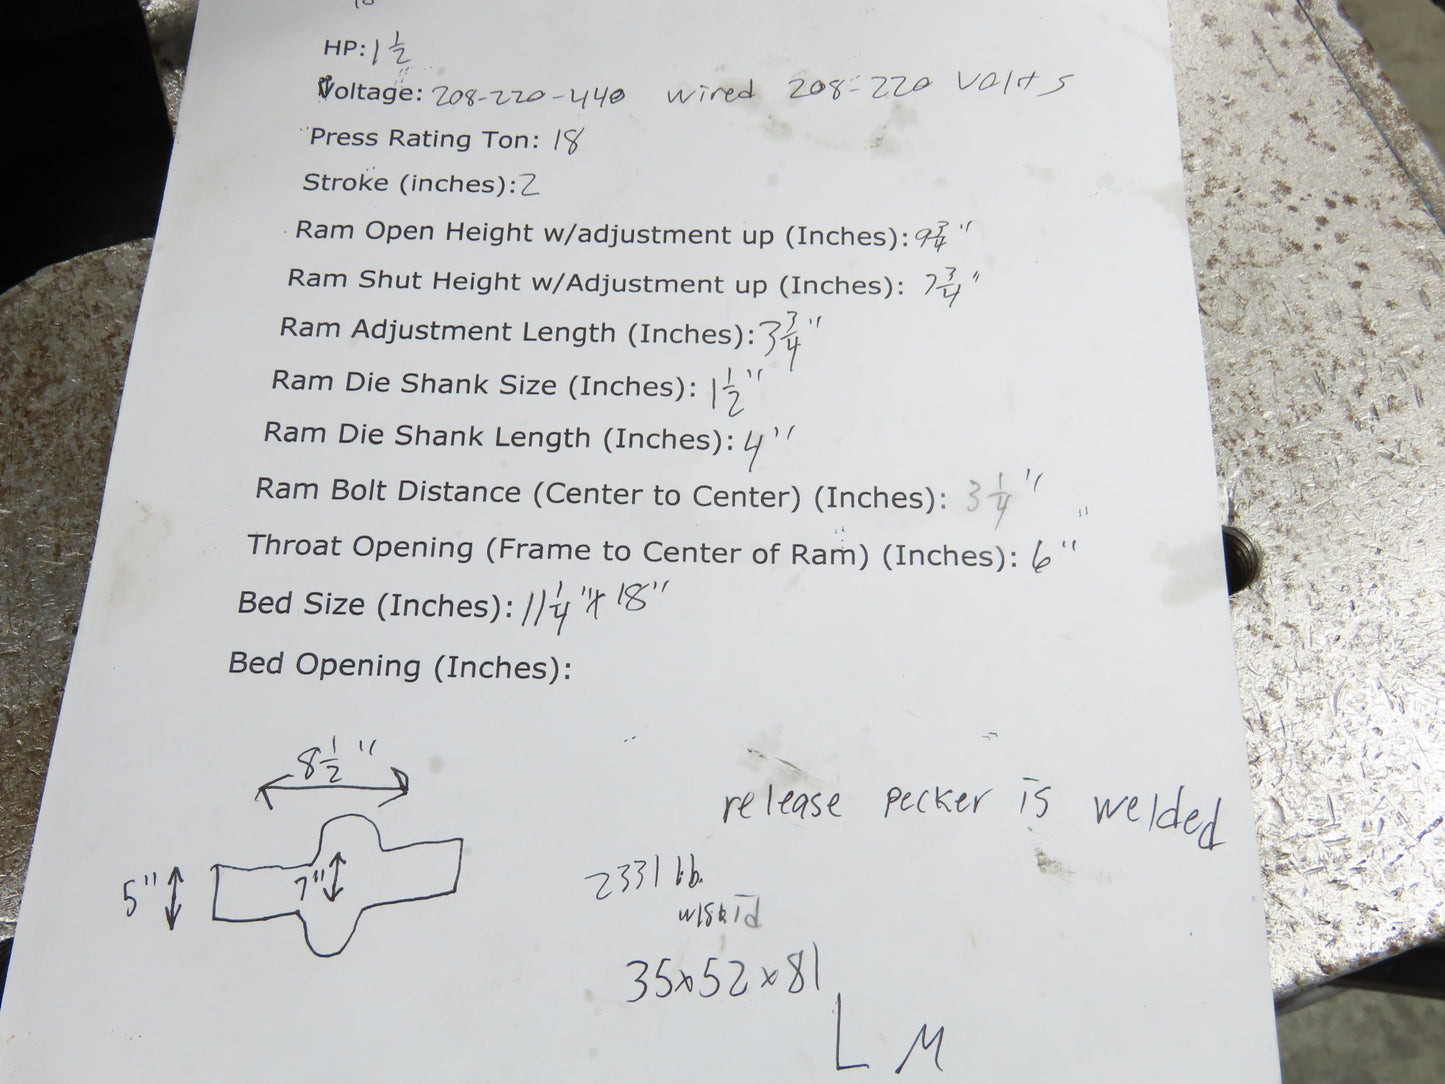 HP: 1 1/2
Voltage: 208-220-440 wired 208-220 Volts
Press Rating Ton: 18
Stroke (inches): 2
Ram Open Height w/adjustment up (Inches): 9 3/4"
Ram Shut Height w/Adjustment up (Inches): 7 3/4"
Ram Adjustment Length (Inches): 3 3/4"
Ram Die Shank Size (Inches): 1 1/2"
Ram Die Shank Length (Inches): 4"
Ram Bolt Distance (Center to Center) (Inches): 3 1/4"
Throat Opening (Frame to Center of Ram) (Inches): 6"
Bed Size (Inches): 11 1/4" x 18"
Bed Opening (Inches):
8 1/2"
5"
7"
release pecker is welded
2331 lb.
w/skid
35x52x81
LM